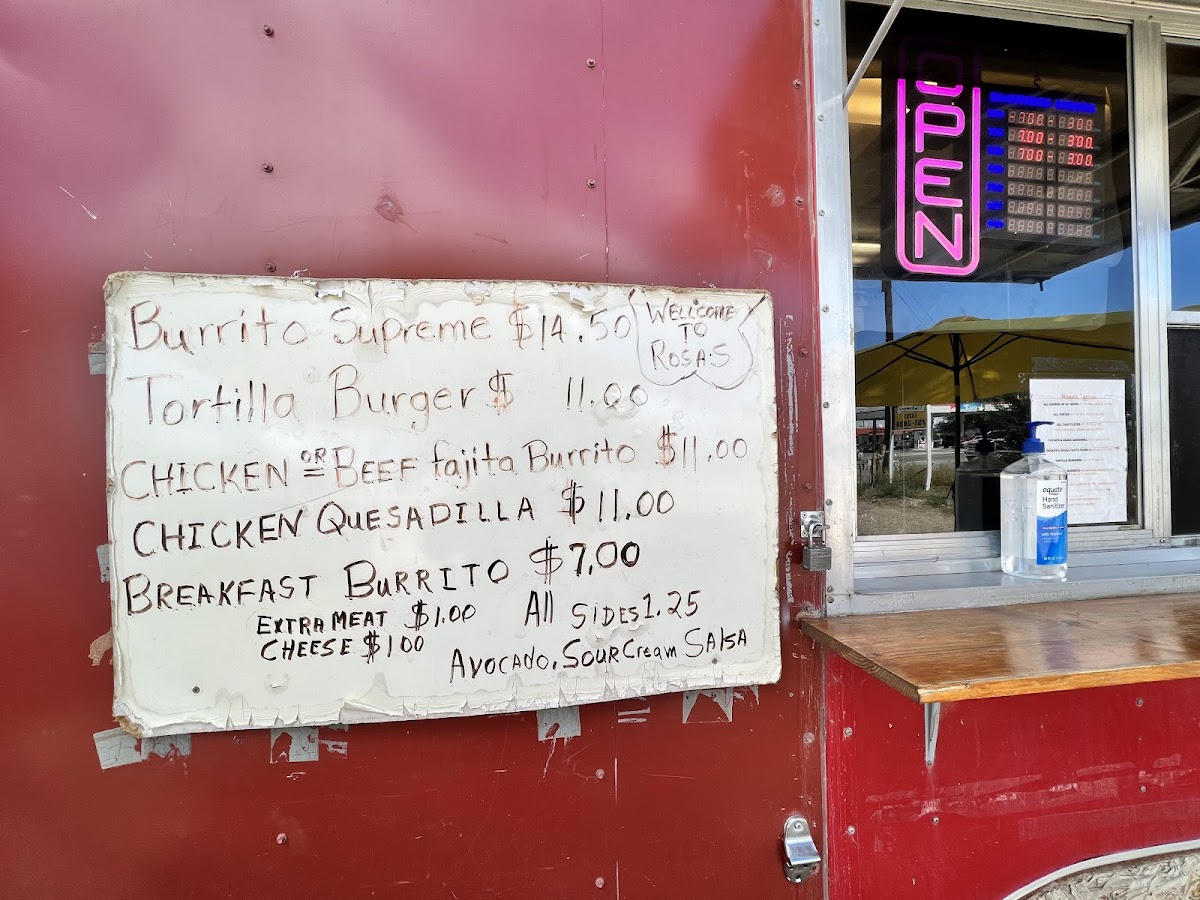 Burrito Supreme $14.50
WELLCOME
TO
ROSA'S
Tortilla Burger $ 11.00
CHICKEN OR BEEF fajita Burrito $11.00
CHICKEN QUESADILLA $11.00
BREAKFAST BURRITO $7.00
EXTRA MEAT $1.00 All SIDES 1.25
CHEESE $1 00
AVOCADO, SOUR Cream SAlSA
OPEN
7:00 3:00
7:00 3:00
7:00 3:00
equate
Hand
Sanitizer